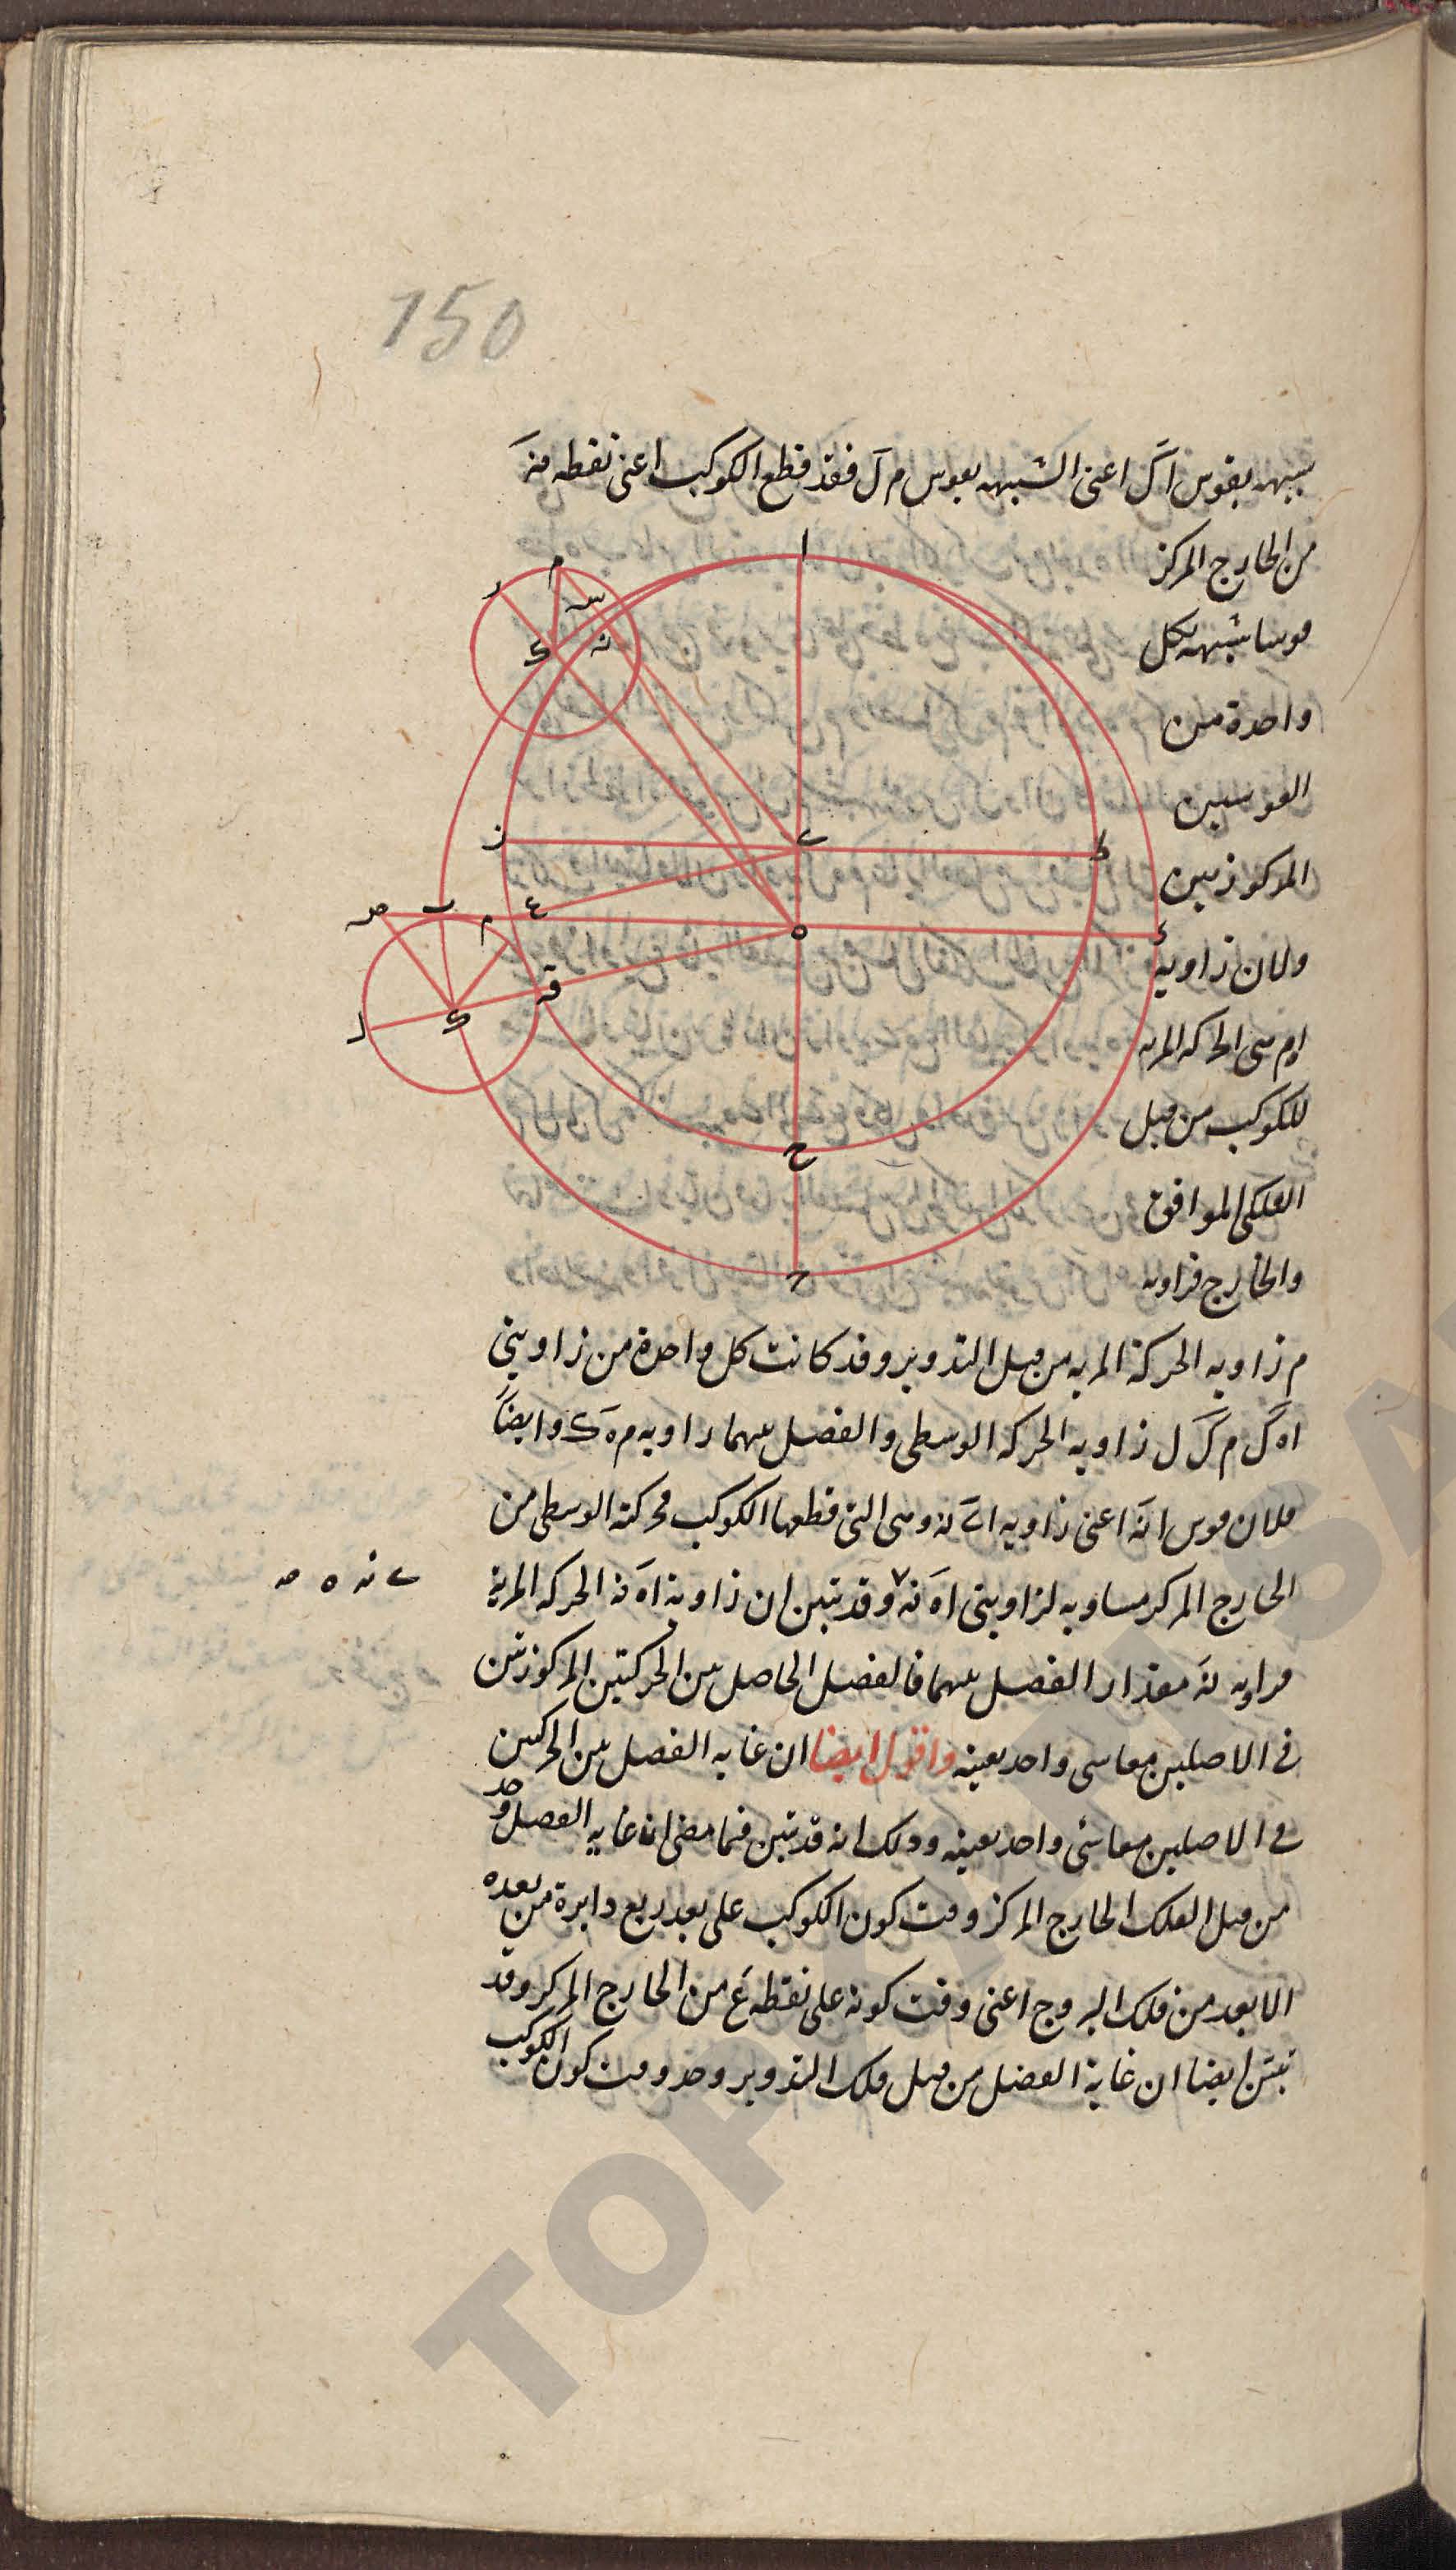 150
شبيهة بقوس اك اعنى الشبيهة بقوس م ل فقد قطع الكوكب اعنى نقطة
من الخارج المركز
قوسا شبيهة بكل
واحدة من
القوسين
المذكورتين
ولان زاوية
اه م هى الحركة المرية
للكوكب من قبل
الفلك الموافق
والخارج فزاوية
م زاوية الحركة المرية من قبل التدوير وقد كانت كل واحدة من زاويتى
اه ك م ك ل زاوية الحركة الوسطى والفضل بينهما زاوية م ه ك وايضا
فلان قوس انه اعنى زاوية وهى التى قطعها الكوكب بحركته الوسطى من
الخارج المركز مساوية لزاويتى اه نه وقد تبين ان زاوية اه نه الحركة المرية
فزاوية نه مقدار الفضل بينهما فالفضل الحاصل بين الحركتين المذكورتين
فى الاصلين معا شى واحد بعينه واقول ايضا ان غاية الفضل بين الحركتين
فى الاصلين معا شى واحد بعينه وذلك انه قد تبين فيما مضى ان غاية الفضل وجد
من قبل الفلك الخارج المركز وقت كون الكوكب على بعد ربع دايرة من بعده
الابعد من فلك البروج اعنى وقت كونه على نقطة ع من الخارج المركز وقد
تبين ايضا ان غاية الفضل من قبل فلك التدوير وجد وقت كون الكوكب
ا
م
ل
س
ك
نه
ز
ط
ص
ب
م
ع
ه
ء
ل
ك
ق
ح
TOP
SA